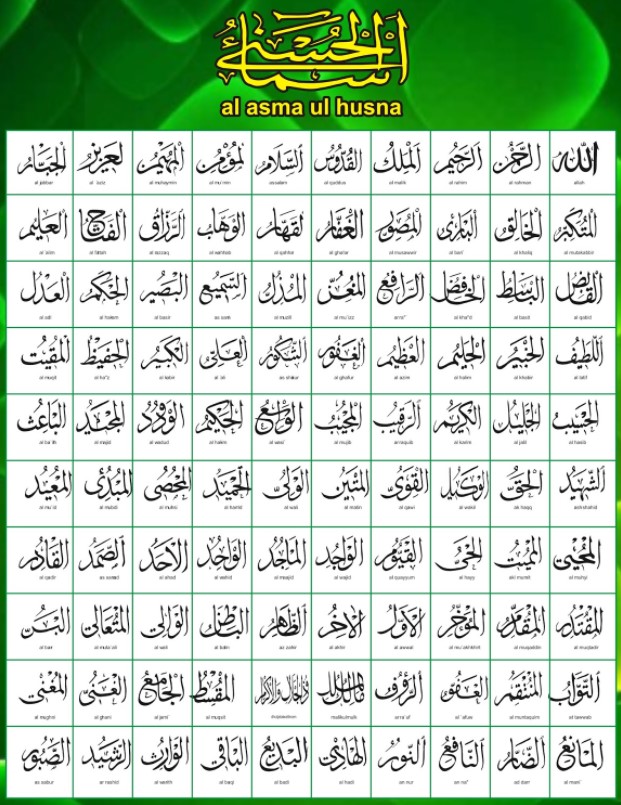 أسماء الحسنى
al asma ul husna
الله الرحمن الرحيم الملك القدوس السلام المؤمن المهيمن العزيز الجبار
allah al rahman al rahim al malik al quddus assalam al mu'min al muhaymin al `aziz al jabbar
المتكبر الخالق البارئ المصور الغفار القهار الوهاب الرزاق الفتاح العليم
al mutakabbir al khaliq al bari' al musawwir al ghafar al qahhar al wahhab al razzaq al fattah al `alim
القابض الباسط الخافض الرافع المعز المذل السميع البصير الحكم العدل
al qabid al basit al khafid ar ra" al mu`izz al muzill as sami al basir al hakam al adl
اللطيف الخبير الحليم العظيم الغفور الشكور العلي الكبير الحفيظ المقيت
al latif al khabir al halim al azim al ghafur as shakur al `ali al kabir al ha"z al muqit
الحسيب الجليل الكريم الرقيب المجيب الواسع الحكيم الودود المجيد الباعث
al hasib al jalil al karim ar raquib al mujib al wasi` al hakim al wadud al majid al ba`ith
الشهيد الحق الوكيل القوى المتين الولى الحميد المحصى المبدئ المعيد
ash shahid al haqq al wakil al qawi al matin al wali al hamid al muhsi al mubdi al mu`id
المحيى المميت الحي القيوم الواجد الماجد الواحد الأحد الصمد القادر
al muhyi al mumit al hayy al qayyum al wajid al maajid al wahid al ahad as samad al qadir
المقتدر المقدم المؤخر الأول الآخر الظاهر الباطن الوالى المتعالى البر
al muqtadir al muqaddim al mu'akhkhir al awwal al akhir az zahir al batin al wali al muta`ali al barr
التواب المنتقم العفو الرؤوف مالك الملك ذوالجلال والإكرام المقسط الجامع الغنى المغنى
al tawwab al muntaqim al `afuw ar ra'uf malikulmulk al muqsit al jami` al ghani al mughni
المانع الضار النافع النور الهادى البديع الباقى الوارث الرشيد الصبور
al mani` ad darr an na" an nur al hadi al badi al baqi al warith ar rashid as sabur